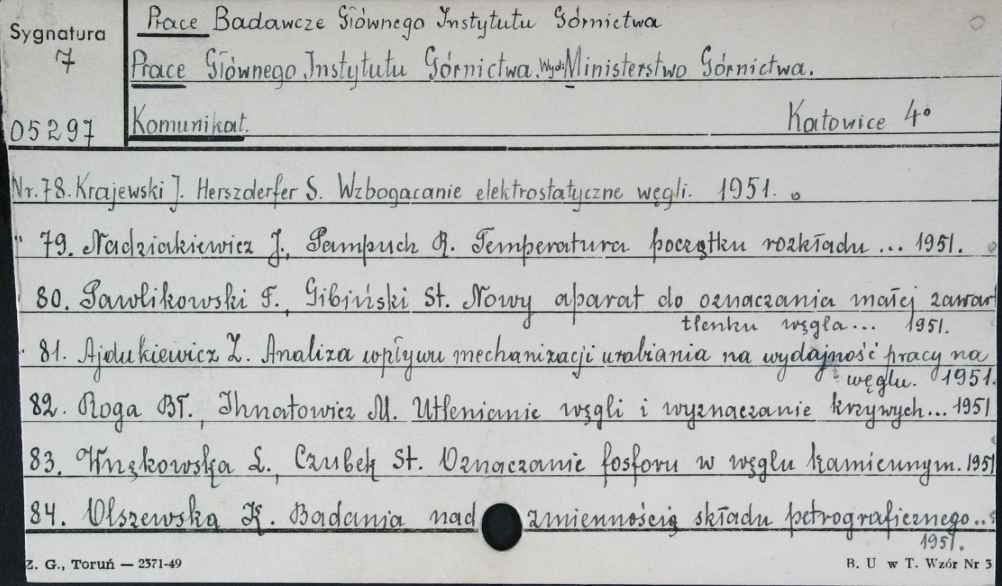 Sygnatura
7
05297
Prace Badawcze Głównego Instytutu Górnictwa
Prace Głównego Instytutu Górnictwa. Wyd: Ministerstwo Górnictwa.
Komunikat. Katowice 4°
Nr. 78. Krajewski J. Herszderfer S. Wzbogacanie elektrostatyczne węgli. 1951.
" 79. Nadziakiewicz J., Pampuch R. Temperatura początku rozkładu ... 1951.
80. Pawlikowski F., Gibiński St. Nowy aparat do oznaczania małej zawar
tlenku węgla ... 1951.
81. Ajdukiewicz Z. Analiza wpływu mechanizacji urabiania na wydajność pracy na
węglu. 1951.
82. Roga Bł., Ihnatowicz M. Utlenianie węgli i wyznaczanie krzywych ... 1951
83. Wnękowska L., Czubek St. Oznaczanie fosforu w węglu kamiennym. 1951
84. Olszewska K. Badania nad zmiennością składu petrograficznego ...
1951.
Z. G., Toruń — 2371-49 B. U w T. Wzór Nr 3